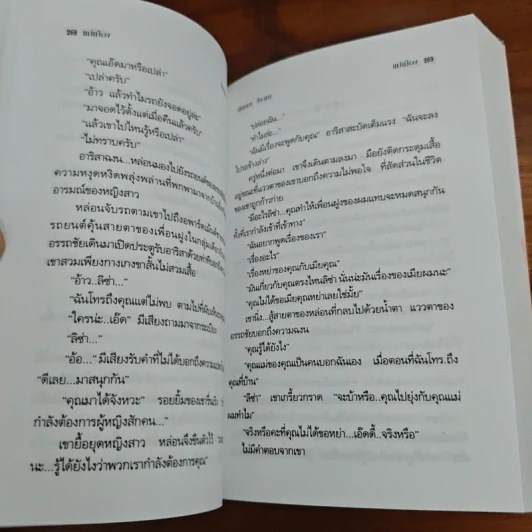 268 แม่เบี้ยว
"คุณแอ๊ดมาหรือเปล่า"
"เปล่าครับ"
"อ้าว แล้วทำไมรถยังจอดอยู่ล่ะ"
"มาจอดไว้ตั้งแต่เมื่อคืนแล้วครับ"
"แล้วเขาไปไหนรู้หรือเปล่า"
"ไม่ทราบครับ"
อาริสาฉงน...หล่อนมองไปยังรถยนต์
ความหงุดหงิดพลุ่งพล่านที่พกพามาจากบ้าน
อารมณ์ของหญิงสาว
หล่อนจับรถตามเขาไปถึงอพาร์ตเม้นต์
รถยนต์คุ้นสายตาของเพื่อนฝูงในกลุ่ม
อรรถชัยเดินมาเปิดประตูรับอาริสาด้วยท่าที
เขาสวมเพียงกางเกงขาสั้นไม่สวมเสื้อ
"อ้าว..ลิซ่า"
"ฉันโทรถึงคุณแต่ไม่พบ ตามไปที่
"ใครน่ะ...เอ็ด" มีเสียงถามมาจาก
"ลิซ่า..."
"อ้อ..."มีเสียงรับคำที่ไม่ได้บอกถึงความ
"ดีเลย...มาสนุกกัน"
"คุณมาได้จังหวะ" รอยยิ้มของเขา
กำลังต้องการผู้หญิงสักคน..."
เขายื้อยุดหญิงสาว หล่อนจึงขืนตัวไว้
นะ...รู้ได้ยังไงว่าพวกเรากำลังต้องการคุณ"
269
"ปล่อยฉัน..."
"ทำไมล่ะ..."
"ฉันมีเรื่องจะพูดกับคุณ" อาริสาสะบัดเต็มแรง "ฉันจะลง
ไปรอข้างล่าง"
ครู่หนึ่งต่อมา เขาจึงเดินตามลงมา มือยังติดกระดุมเสื้อ
อยู่ขณะที่แววตาของเขาบอกถึงความไม่พอใจ ที่สัดส่วนในชีวิต
ของเขาถูกก้าวก่าย
"มีอะไรลิซ่า...คุณทำให้เพื่อนฝูงของผมแทบจะหมดสนุกกัน
ทั้งที่เรากำลังเข้าที่เข้าทาง"
"ฉันอยากพูดเรื่องของเรา"
"เรื่องอะไร"
"เรื่องหย่าของคุณกับเมียคุณ"
"มันเกี่ยวกับคุณตรงไหนลิซ่า นั่นน่ะมันเรื่องของเมียผมนะ"
"คุณไม่ได้ขอเมียคุณหย่าเลยใช่มั้ย"
เขานิ่ง...สู้สายตาของหล่อนที่กลบไปด้วยน้ำตา แววตาของ
อรรถชัยบอกถึงความฉงน
"คุณรู้ได้ยังไง"
"คุณแม่ของคุณเป็นคนบอกฉันเอง เมื่อตอนที่ฉันโทร.ถึง
คุณที่บ้าน"
"ลิซ่า" เขาเกรี้ยวกราด "จะบ้าหรือ..คุณไปยุ่งกับคุณแม่
ผมทำไม"
"จริงหรือคะที่คุณไม่ได้ขอหย่า...เอ็ดดี้..จริงหรือ"
ไม่มีคำตอบจากเขา